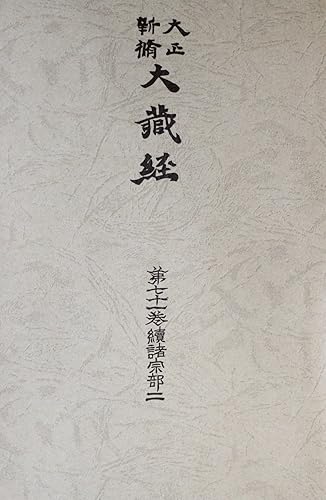 大正
新脩
大藏経
第七十一巻續諸宗部二